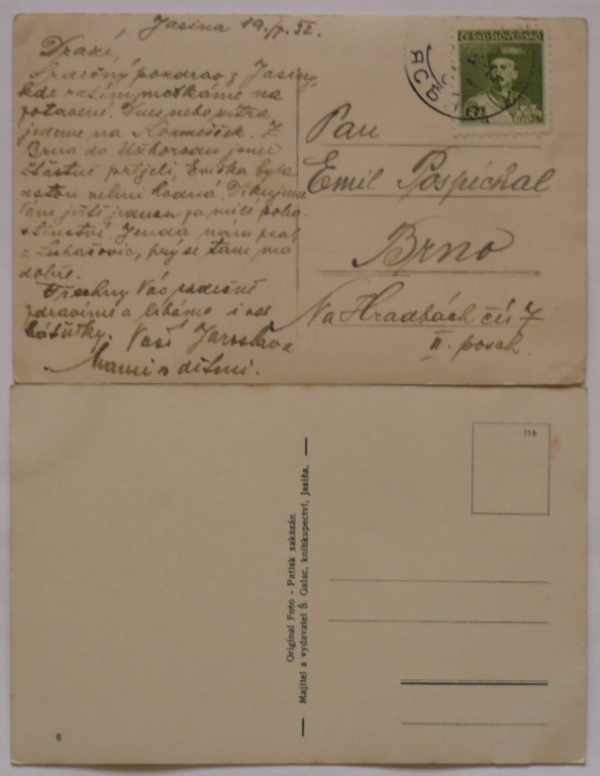 Jasina 19./7. 32.
Drazí,
Srdečný pozdrav z Jasiny,
kde zatím
Dnes nebo zítra
jedeme na Kozmeščék. Z
Brna do Užhorodu jsme
šťastně přijeli, Evička byla
velmi hodná. Děkujeme
Vám ještě jednou za milé poho-
stinství. Jenda nám psal
z Luhačovic, prý se tam má
dobře.
Všechny Vás srdečně
zdravíme a líbáme i od
Vaši Jaroslava
s dětmi.
ČESKOSLOVENSKO
Pan
Emil Pospíchal
Brno
Na Hradbách čís 7
II. posch.
116
Original Foto - Patisk zakázán.
Majitel a vydavatel Š. Galac, knihkupectví, Jasiňa.
6